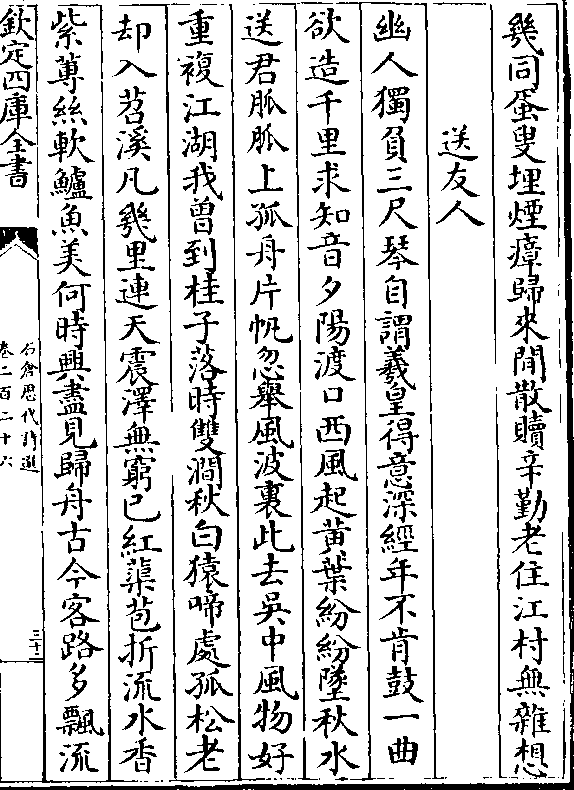 幾同蛋叟埋煙瘴歸來閒散贖辛勤老住江村無雜想
送友人
幽人獨負三尺琴自謂羲皇得意深經年不肯鼓一曲
欲造千里求知音夕陽渡口西風起黃葉紛紛墜秋水
送君脈脈上孤舟片帆忽舉風波裏此去吳中風物好
重複江湖我曾到桂子落時雙澗秋白猿啼處孤松老
却入苕溪凡幾里連天震澤無窮已紅蕖苞折流水香
紫蓴絲軟鱸魚美何時興盡見歸舟古今客路多飄流
欽定四庫全書
石倉歷代詩選
卷二百二十六
三十二